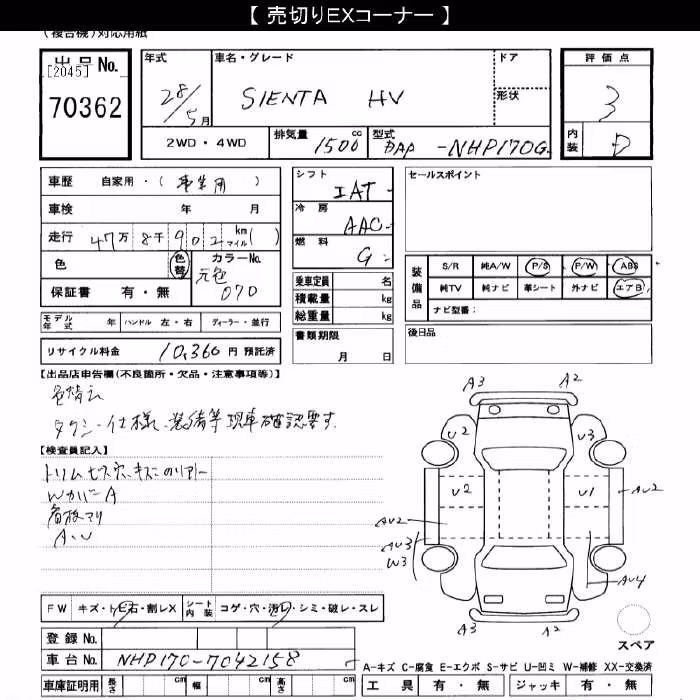 【 売切りEXコーナー 】
(複合機)対応用紙
出品No.
[2045]
70362
年式
28/5月
車名・グレード
SIENTA HV
ドア
形状
評価点
3
内装
D
2WD・4WD
排気量
1500 cc
型式
DAA -NHP170G
車歴 自家用・( 事業用 )
車検 年 月
走行 47万 8千 902 km マイル( )
色
色替
カラーNo.
元色 070
保証書 有・無
シフト
IAT
冷房
AAC
燃料
G
乗車定員 名
積載量 kg
総重量 kg
書類期限
月 日
セールスポイント
装備品
S/R 純A/W P/S P/W ABS
純TV 純ナビ 革シート 外ナビ エアB
ナビ型番:
後日品
モデル年式 年 ハンドル 左・右 ディーラー・並行
リサイクル料金 10,360 円 預託済
【出品店申告欄(不良箇所・欠品・注意事項等)】
色替え
タクシー仕様、装備等現車確認要す
【検査員記入】
トリムビス穴、キズ
WカバーA
看板マリ
A・U
FW キズ・トビ石・割レX
シート内装 コゲ・穴・汚レ・シミ・破レ・スレ
登録 No.
車台 No. NHP170-7042158
車庫証明用 長さ cm 幅 cm 高さ cm
A3 A2
U2 U3
U2 U1 AU2
AU2
AU3
W3
AU4
A3 A2
スペア
A-キズ C-腐食 E-エクボ S-サビ U-凹ミ W-補修 XX-交換済
工具 有・無 ジャッキ 有・無